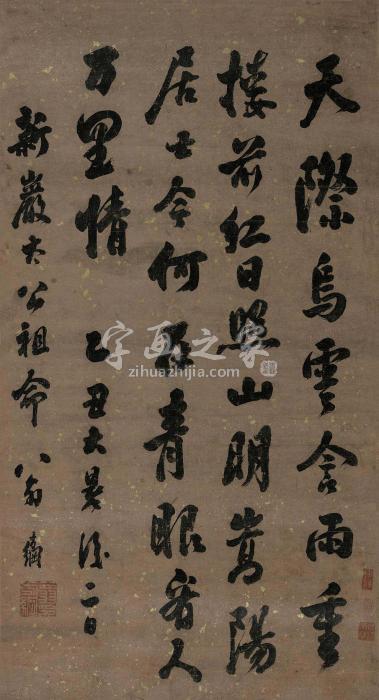 天際烏雲含雨重
樓前紅日照山明嵩陽
居士今何在青眼看人
万里情 乙丑大暑後二日
新巖太公祖命 八翁
字画之家
zihuazhijia.com